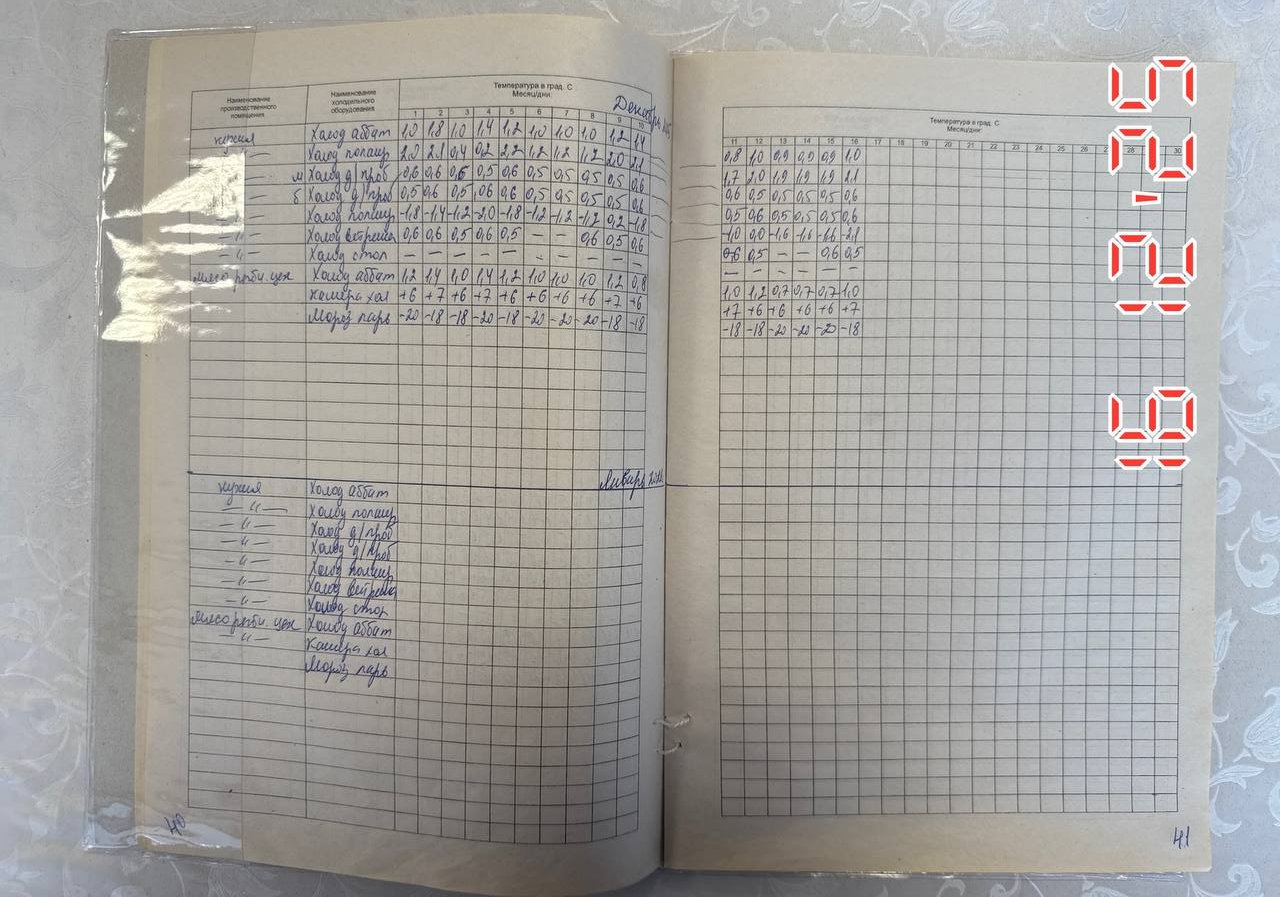 Наименование производственного помещения
Наименование холодильного оборудования
Температура в град. С
Месяц/дни:
Декабрь
1 2 3 4 5 6 7 8 9 10
кухня Холод аббат 1,0 1,8 1,0 1,4 1,2 1,0 1,0 1,0 1,2 1,4
— " — Холод полаир 2,0 2,1 0,4 0,2 2,2 1,2 1,2 1,2 2,0 2,1
м Холод д/проб 0,6 0,6 0,6 0,5 0,6 0,5 0,5 0,5 0,5 0,6
б Холод д/проб 0,5 0,6 0,5 0,6 0,6 0,5 0,5 0,5 0,5 0,6
— " — Холод полаир -1,8 -1,4 -1,2 -2,0 -1,8 -1,2 -1,2 -1,2 0,2 -1,8
— " — Холод 0,6 0,6 0,5 0,6 0,5 — — 0,6 0,5 0,6
— " — Холод стол — — — — — — — — — —
мясо рыбн. цех Холод аббат 1,2 1,4 1,0 1,4 1,2 1,0 1,0 1,0 1,2 0,8
Камера хол +6 +7 +6 +7 +6 +6 +6 +6 +7 +6
Мороз ларь -20 -18 -18 -20 -18 -20 -20 -20 -18 -18
Январь
кухня Холод аббат
— " — Холод полаир
— " — Холод д/проб
— " — Холод д/проб
— " — Холод полаир
— " — Холод
— " — Холод стол
мясо рыбн. цех Холод аббат
— " — Камера хол
Мороз ларь
40
Температура в град. С
Месяц/дни:
11 12 13 14 15 16 17 18 19 20 21 22 23 24 25 26 27 28 30
0,8 1,0 0,9 0,9 0,9 1,0
1,7 2,0 1,9 1,9 1,9 2,1
0,6 0,5 0,5 0,5 0,5 0,6
0,5 0,6 0,5 0,5 0,5 0,6
-1,0 0,0 -1,6 -1,6 -1,6 2,1
0,6 0,5 — — 0,6 0,5
— — — — — —
1,0 1,2 0,7 0,7 0,7 1,0
+7 +6 +6 +6 +6 +7
-18 -18 -20 -20 -20 -18
41
16 12-25